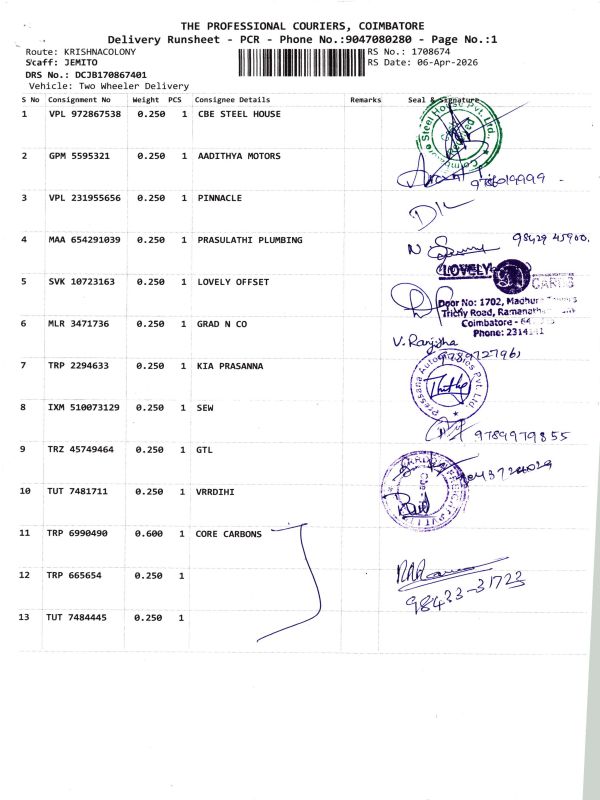 THE PROFESSIONAL COURIERS, COIMBATORE
Delivery Runsheet - PCR - Phone No.:9047080280 - Page No.:1
Route: KRISHNACOLONY RS No.: 1708674
Scaff: JEMITO RS Date: 06-Apr-2026
DRS No.: DCJB170867401
Vehicle: Two Wheeler Delivery
S No Consignment No Weight PCS Consignee Details Remarks Seal & Signature
1 VPL 972867538 0.250 1 CBE STEEL HOUSE
2 GPM 5595321 0.250 1 AADITHYA MOTORS
3 VPL 231955656 0.250 1 PINNACLE
4 MAA 654291039 0.250 1 PRASULATHI PLUMBING 98429 45900.
5 SVK 10723163 0.250 1 LOVELY OFFSET
LOVELY CARDS
Door No: 1702, Madhur
Trichy Road, Ramanatha
Coimbatore -
Phone:
6 MLR 3471736 0.250 1 GRAD N CO
V. Ranjitha
7 TRP 2294633 0.250 1 KIA PRASANNA
8 IXM 510073129 0.250 1 SEW
9789979855
9 TRZ 45749464 0.250 1 GTL
10 TUT 7481711 0.250 1 VRRDIHI
11 TRP 6990490 0.600 1 CORE CARBONS
12 TRP 665654 0.250 1
98433-31723
13 TUT 7484445 0.250 1